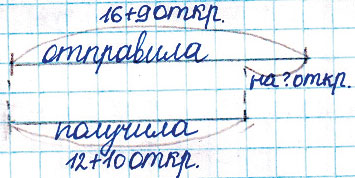 16+9 откр.
отправила
на ? откр.
получила
12+10 откр.